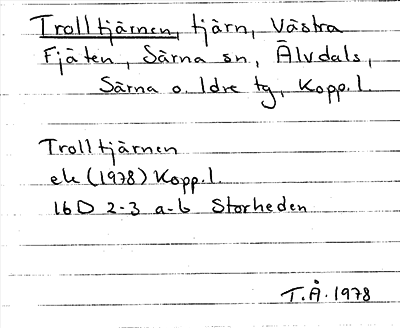 Trolltjärnen, tjärn, Västra
Fjäten, Särna sn, Älvdals,
Särna o. Idre tg, Kopp. l.
Trolltjärnen
ek (1978) Kopp. l.
16D 2-3 a-b Storheden
T.Å. 1978